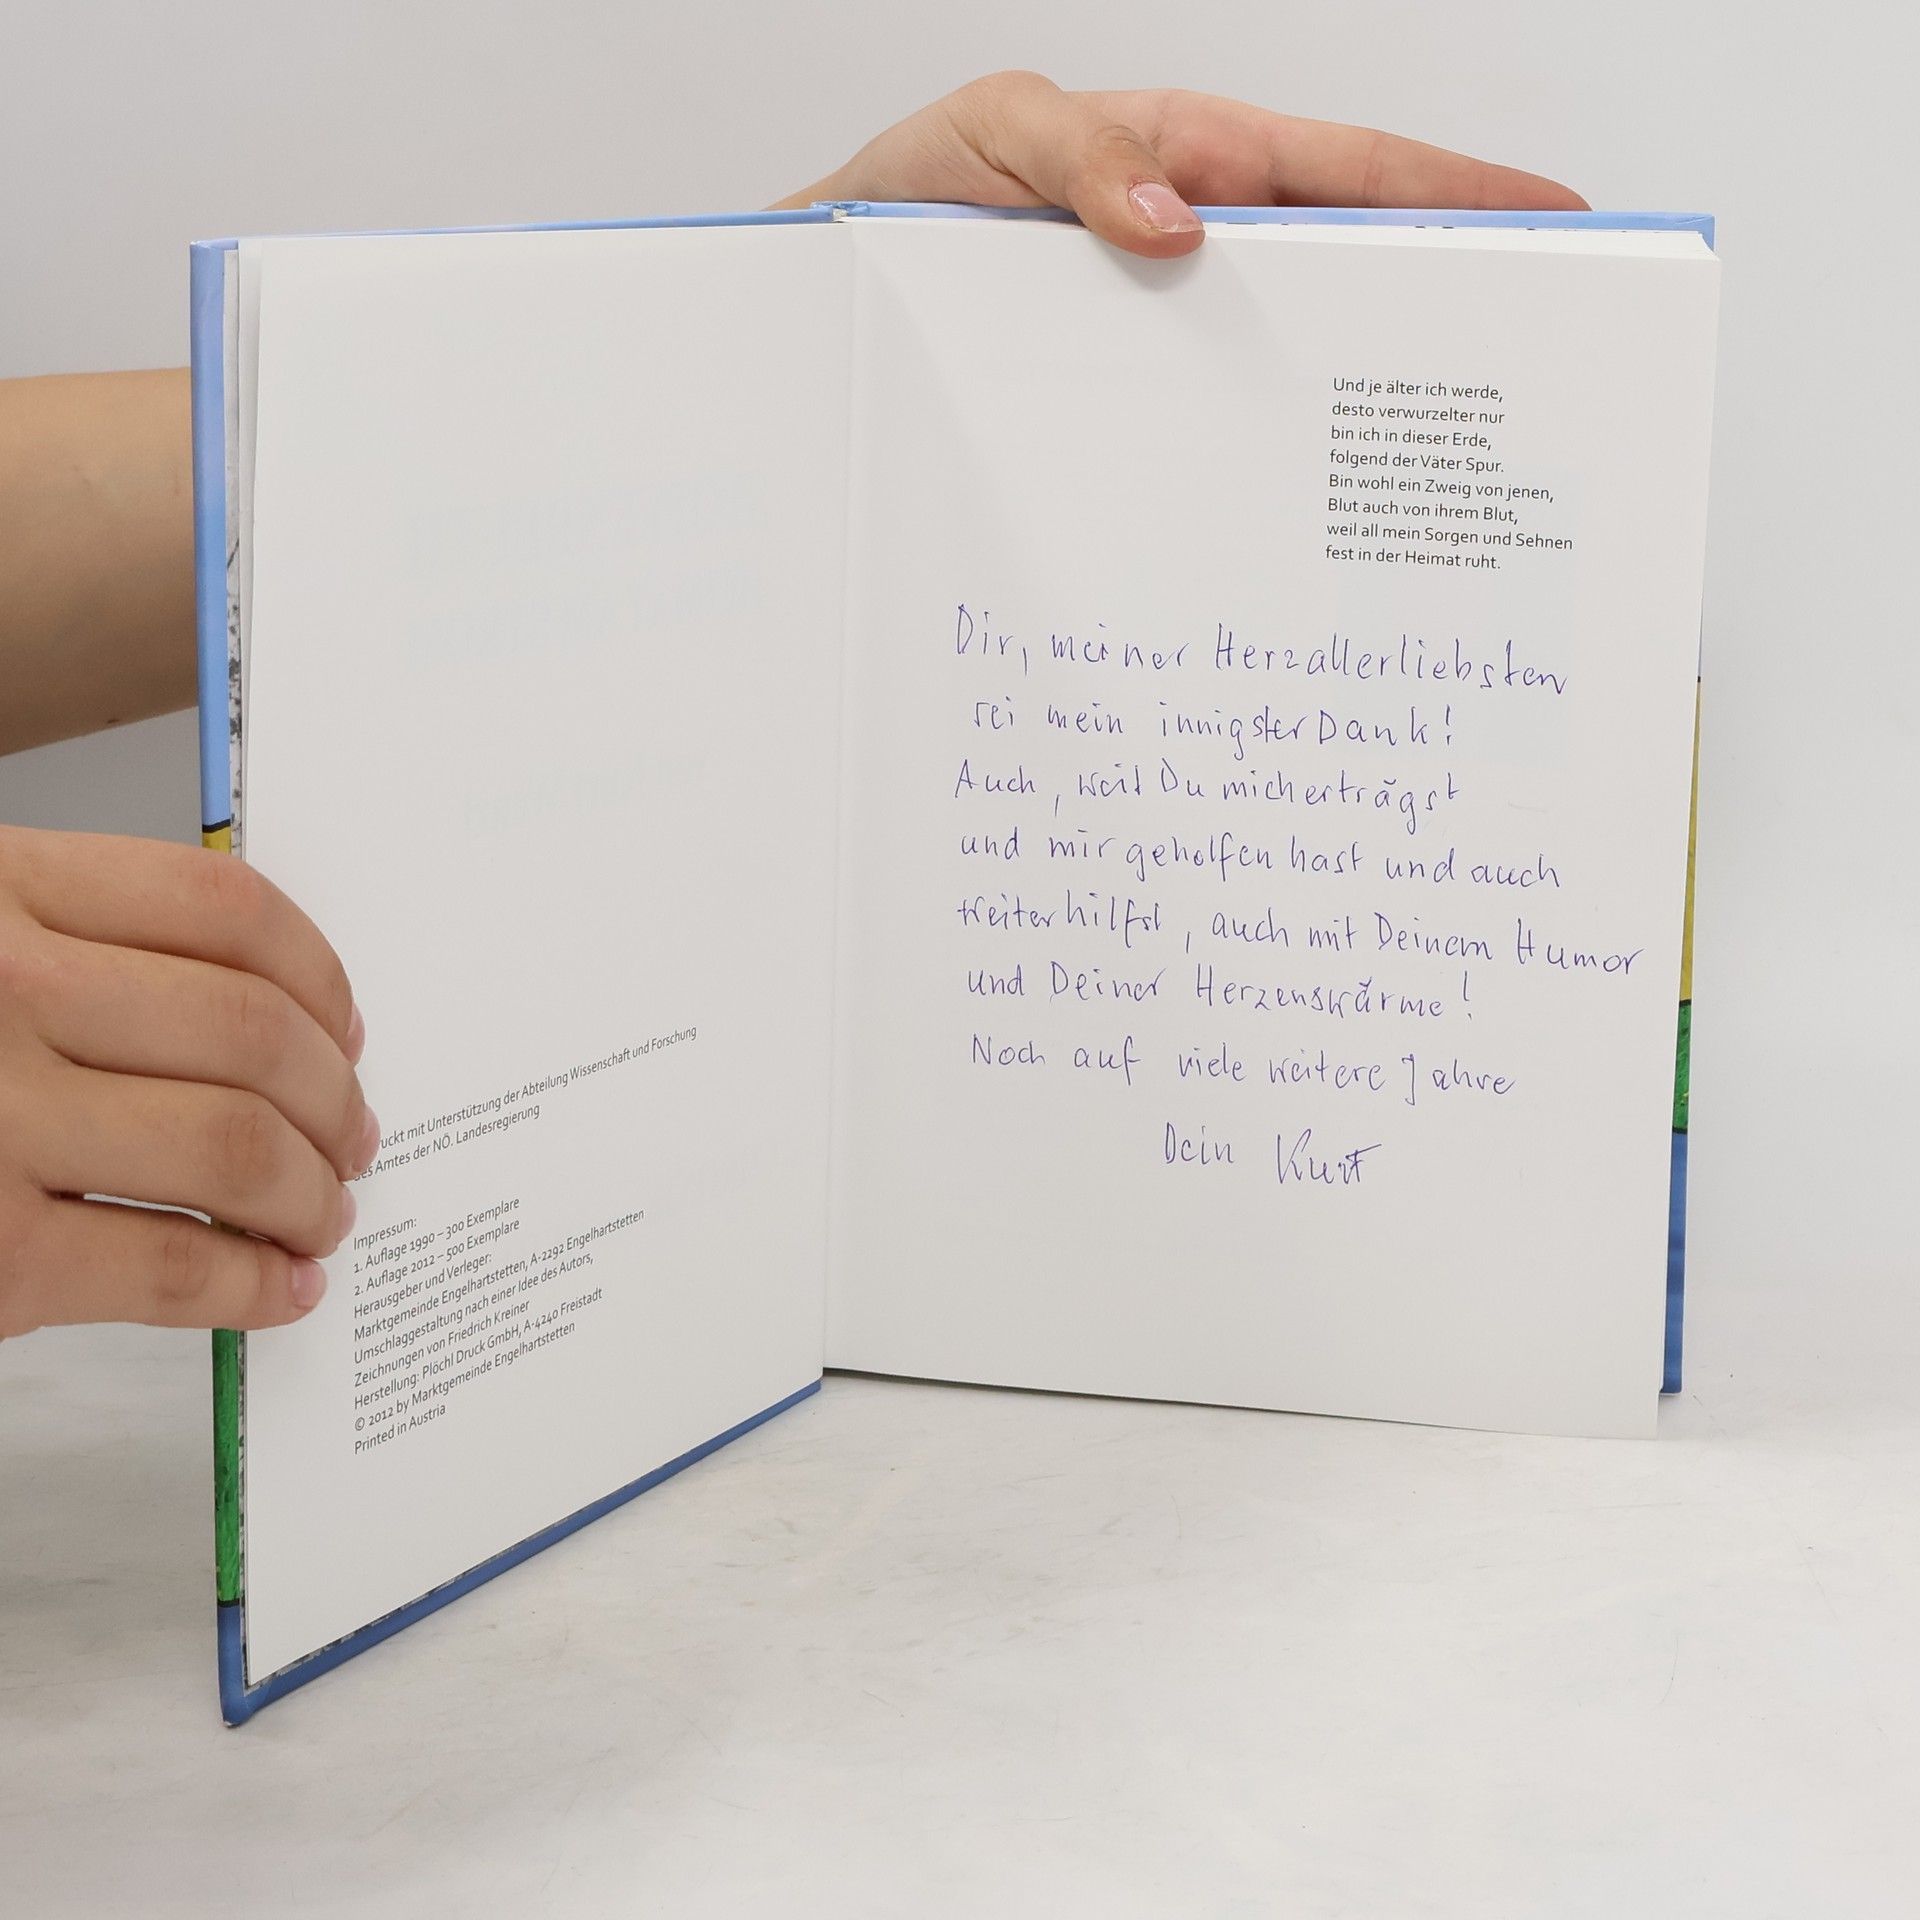 uckt mit Unterstützung der Abteilung Wissenschaft und Forschung
es Amtes der NÖ. Landesregierung
Impressum:
1. Auflage 1990 – 300 Exemplare
2. Auflage 2012 – 500 Exemplare
Herausgeber und Verleger:
Marktgemeinde Engelhartstetten, A-2292 Engelhartstetten
Umschlaggestaltung nach einer Idee des Autors,
Zeichnungen von Friedrich Kreiner
Herstellung: Plöchl Druck GmbH, A-4240 Freistadt
© 2012 by Marktgemeinde Engelhartstetten
Printed in Austria
Und je älter ich werde,
desto verwurzelter nur
bin ich in dieser Erde,
folgend der Väter Spur.
Bin wohl ein Zweig von jenen,
Blut auch von ihrem Blut,
weil all mein Sorgen und Sehnen
fest in der Heimat ruht.
Dir, meiner Herzallerliebsten
sei mein innigster Dank!
Auch, weil Du mich erträgst
und mir geholfen hast und auch
weiterhilfst, auch mit Deinem Humor
und Deiner Herzenswärme!
Noch auf viele weitere Jahre
Dein Kurt